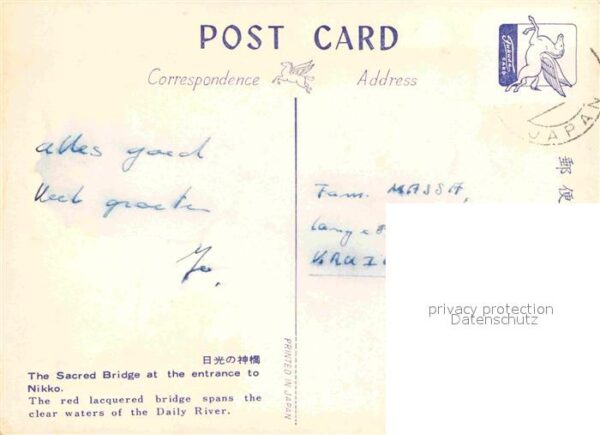 POST CARD
Correspondence
Address
JAPAN
郵便
alles goed
Veel groeten
Jo.
Fam. MASSA,
日光の神橋
The Sacred Bridge at the entrance to
Nikko.
The red lacquered bridge spans the
clear waters of the Daily River.
PRINTED IN JAPAN
privacy protection
Datenschutz